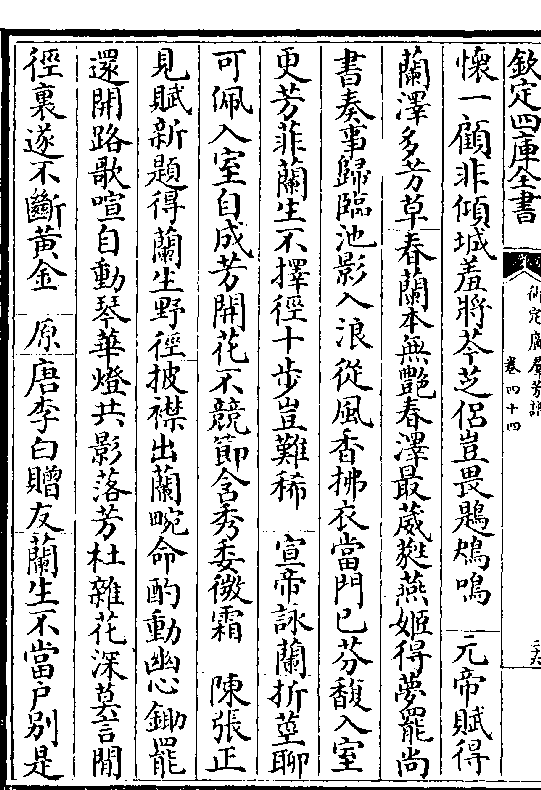 欽定四庫全書
御定廣羣芳譜
卷四十四
懷一顧非傾城羞將芩芝侶豈畏鶗鴂鳴 元帝賦得
蘭澤多芳草春蘭本無艷春澤最葳蕤燕姬得夢罷尚
書奏事歸臨池影入浪從風香拂衣當門已芬馥入室
更芳菲蘭生不擇徑十步豈難稀 宣帝詠蘭折莖聊
可佩入室自成芳開花不競節含秀委微霜 陳張正
見賦新題得蘭生野徑披襟出蘭畹命酌動幽心鋤罷
還開路歌喧自動琴華燈共影落芳杜雜花深莫言閒
徑裏遂不斷黃金 原唐李白贈友蘭生不當户別是